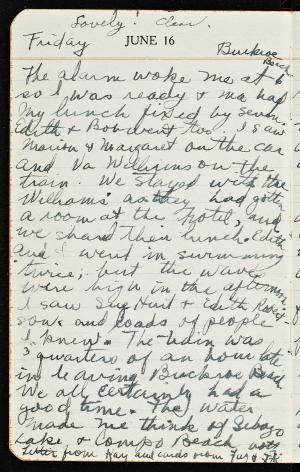 Lovely! Clear.
Friday JUNE 16 Buckroe
Beach
The alarm woke me at 6
so I was ready & ma had
my lunch fixed by seven
Edith & Bob went too. I saw
Marion & Margaret on the car
and Va Williams on the
train. We stayed with the
Williams' as they had gotten
a room at the hotel, and
we shared their lunch. Edith
and I went in swimming
twice, but the waves
were high in the afternoon
I saw Sue Hunt & Edith Robin
son and loads of people
I knew. The train was
3 quarters of an hour late
in leaving Buckroe Beach
We all certainly had a
good time. The water
made me think of Sebago
Lake, & Compo Beach
Letter from Kay and cards from